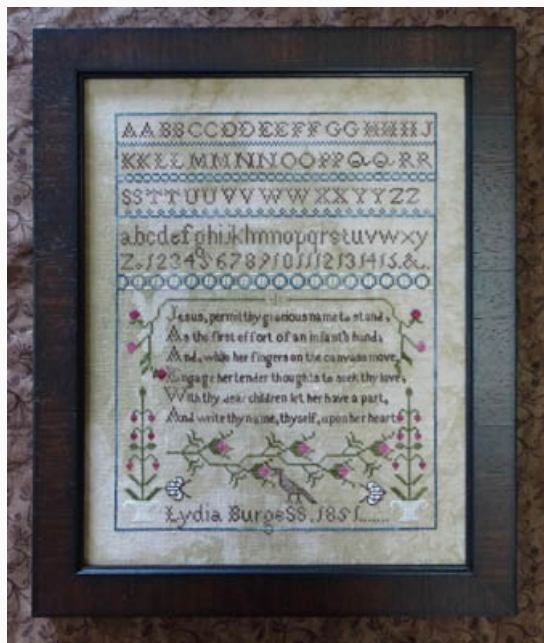 AABBCCDDEEFFGGHHIJ
KKLLMMNNOOPPQQRR
SSTTUUVVWWXXYYZZ
abcdefghijklmnopqrstuvwxy
z.123456789101112131415.&.
Jesus, permit thy gracious name to stand,
As the first effort of an infant's hand;
And, while her fingers on the canvass move,
Engage her tender thoughts to seek thy love;
With thy dear children let her have a part,
And write thy name, thyself, upon her heart.
Lydia Burgess.1851.......